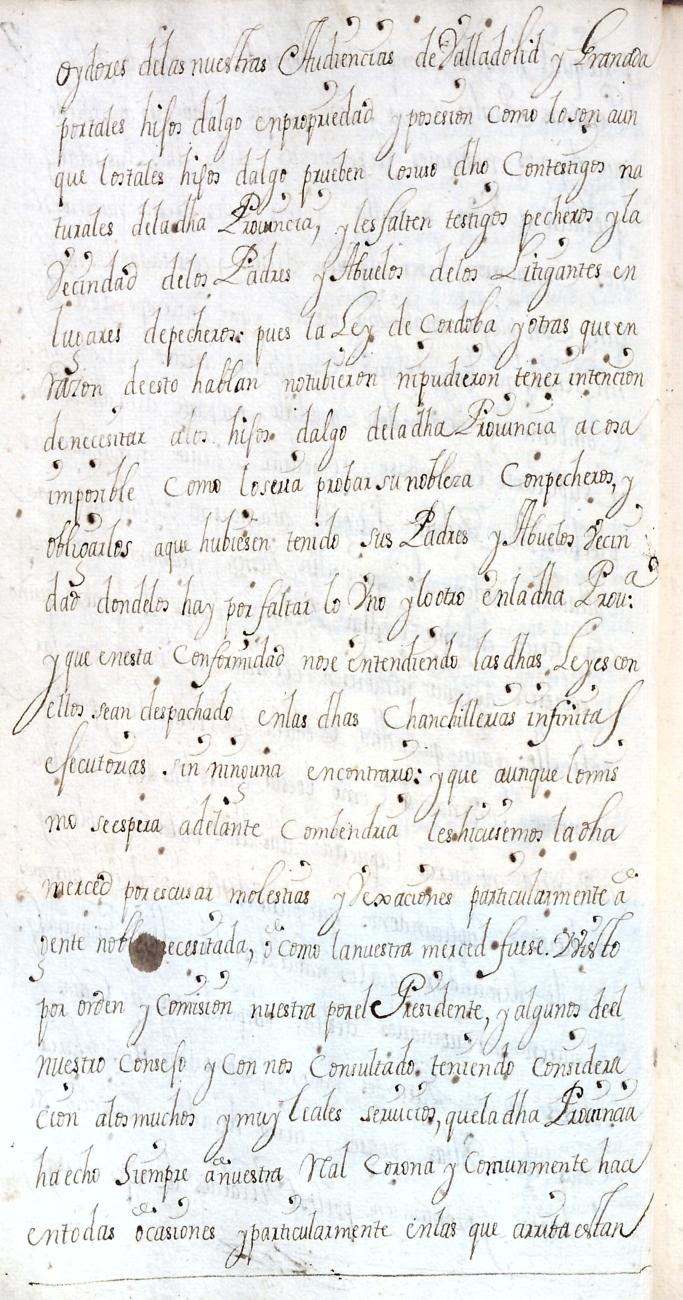 oydores delas nuestras Audiencias de Valladolid y Granada
portales hijos dalgo enpropriedad y posesion como lo son aun
que lostales hijos dalgo prueben losuso dho Contestigos na
turales deladha Provincia, y les falten testigos pecheros y la
Vecindad delos Padres y Abuelos delos Litigantes en
lugares depecheros: pues la Ley de Cordoba y otras que en
Razon deesto hablan notubieron nipudieron tener intencion
denecesitar alos hijos dalgo deladha Provincia acosa
imposible Como loseria probar su nobleza Conpecheros, y
obligarlos aque hubiesen tenido sus Padres y Abuelos Vecin
dad dondelos hay por faltar lo Vno y lo otro enladha Prou.a:
y que enesta Conformidad nose entendiendo las dhas Leyes con
ellos sean despachado enlas dhas Chanchillerias infinitas
ejecutorias sin ninguna encontrario: y que aunque lomis
mo seespera adelante Combendria les hiciesemos la dha
merced por escusar molestias y Vexaciones particularmente á
gente noble necesitada, ó como lanuestra merced fuese. Visto
por orden y Comision nuestra porel Presidente, y algunos deel
nuestro Consejo y Con nos Consultado teniendo Considera
cion alos muchos y muy leales servicios, quela dha Provincia
ha echo Siempre á nuestra Rial Corona y Comunmente hace
entodas ocasiones y particularmente enlas que arriba estan